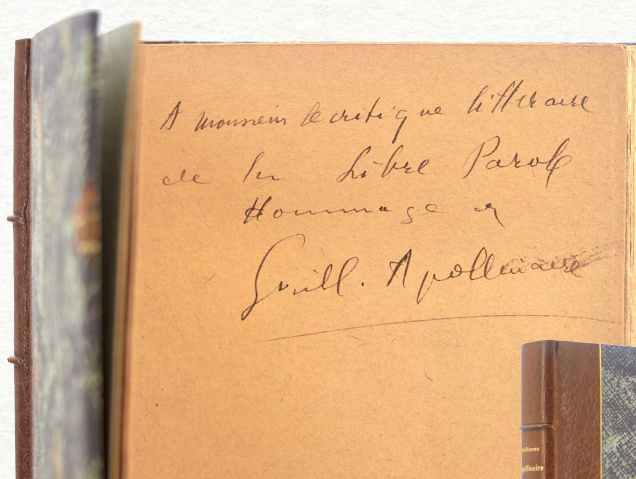 A monsieur le critique littéraire
de la Libre Parole
Hommage de
Guill. Apollinaire